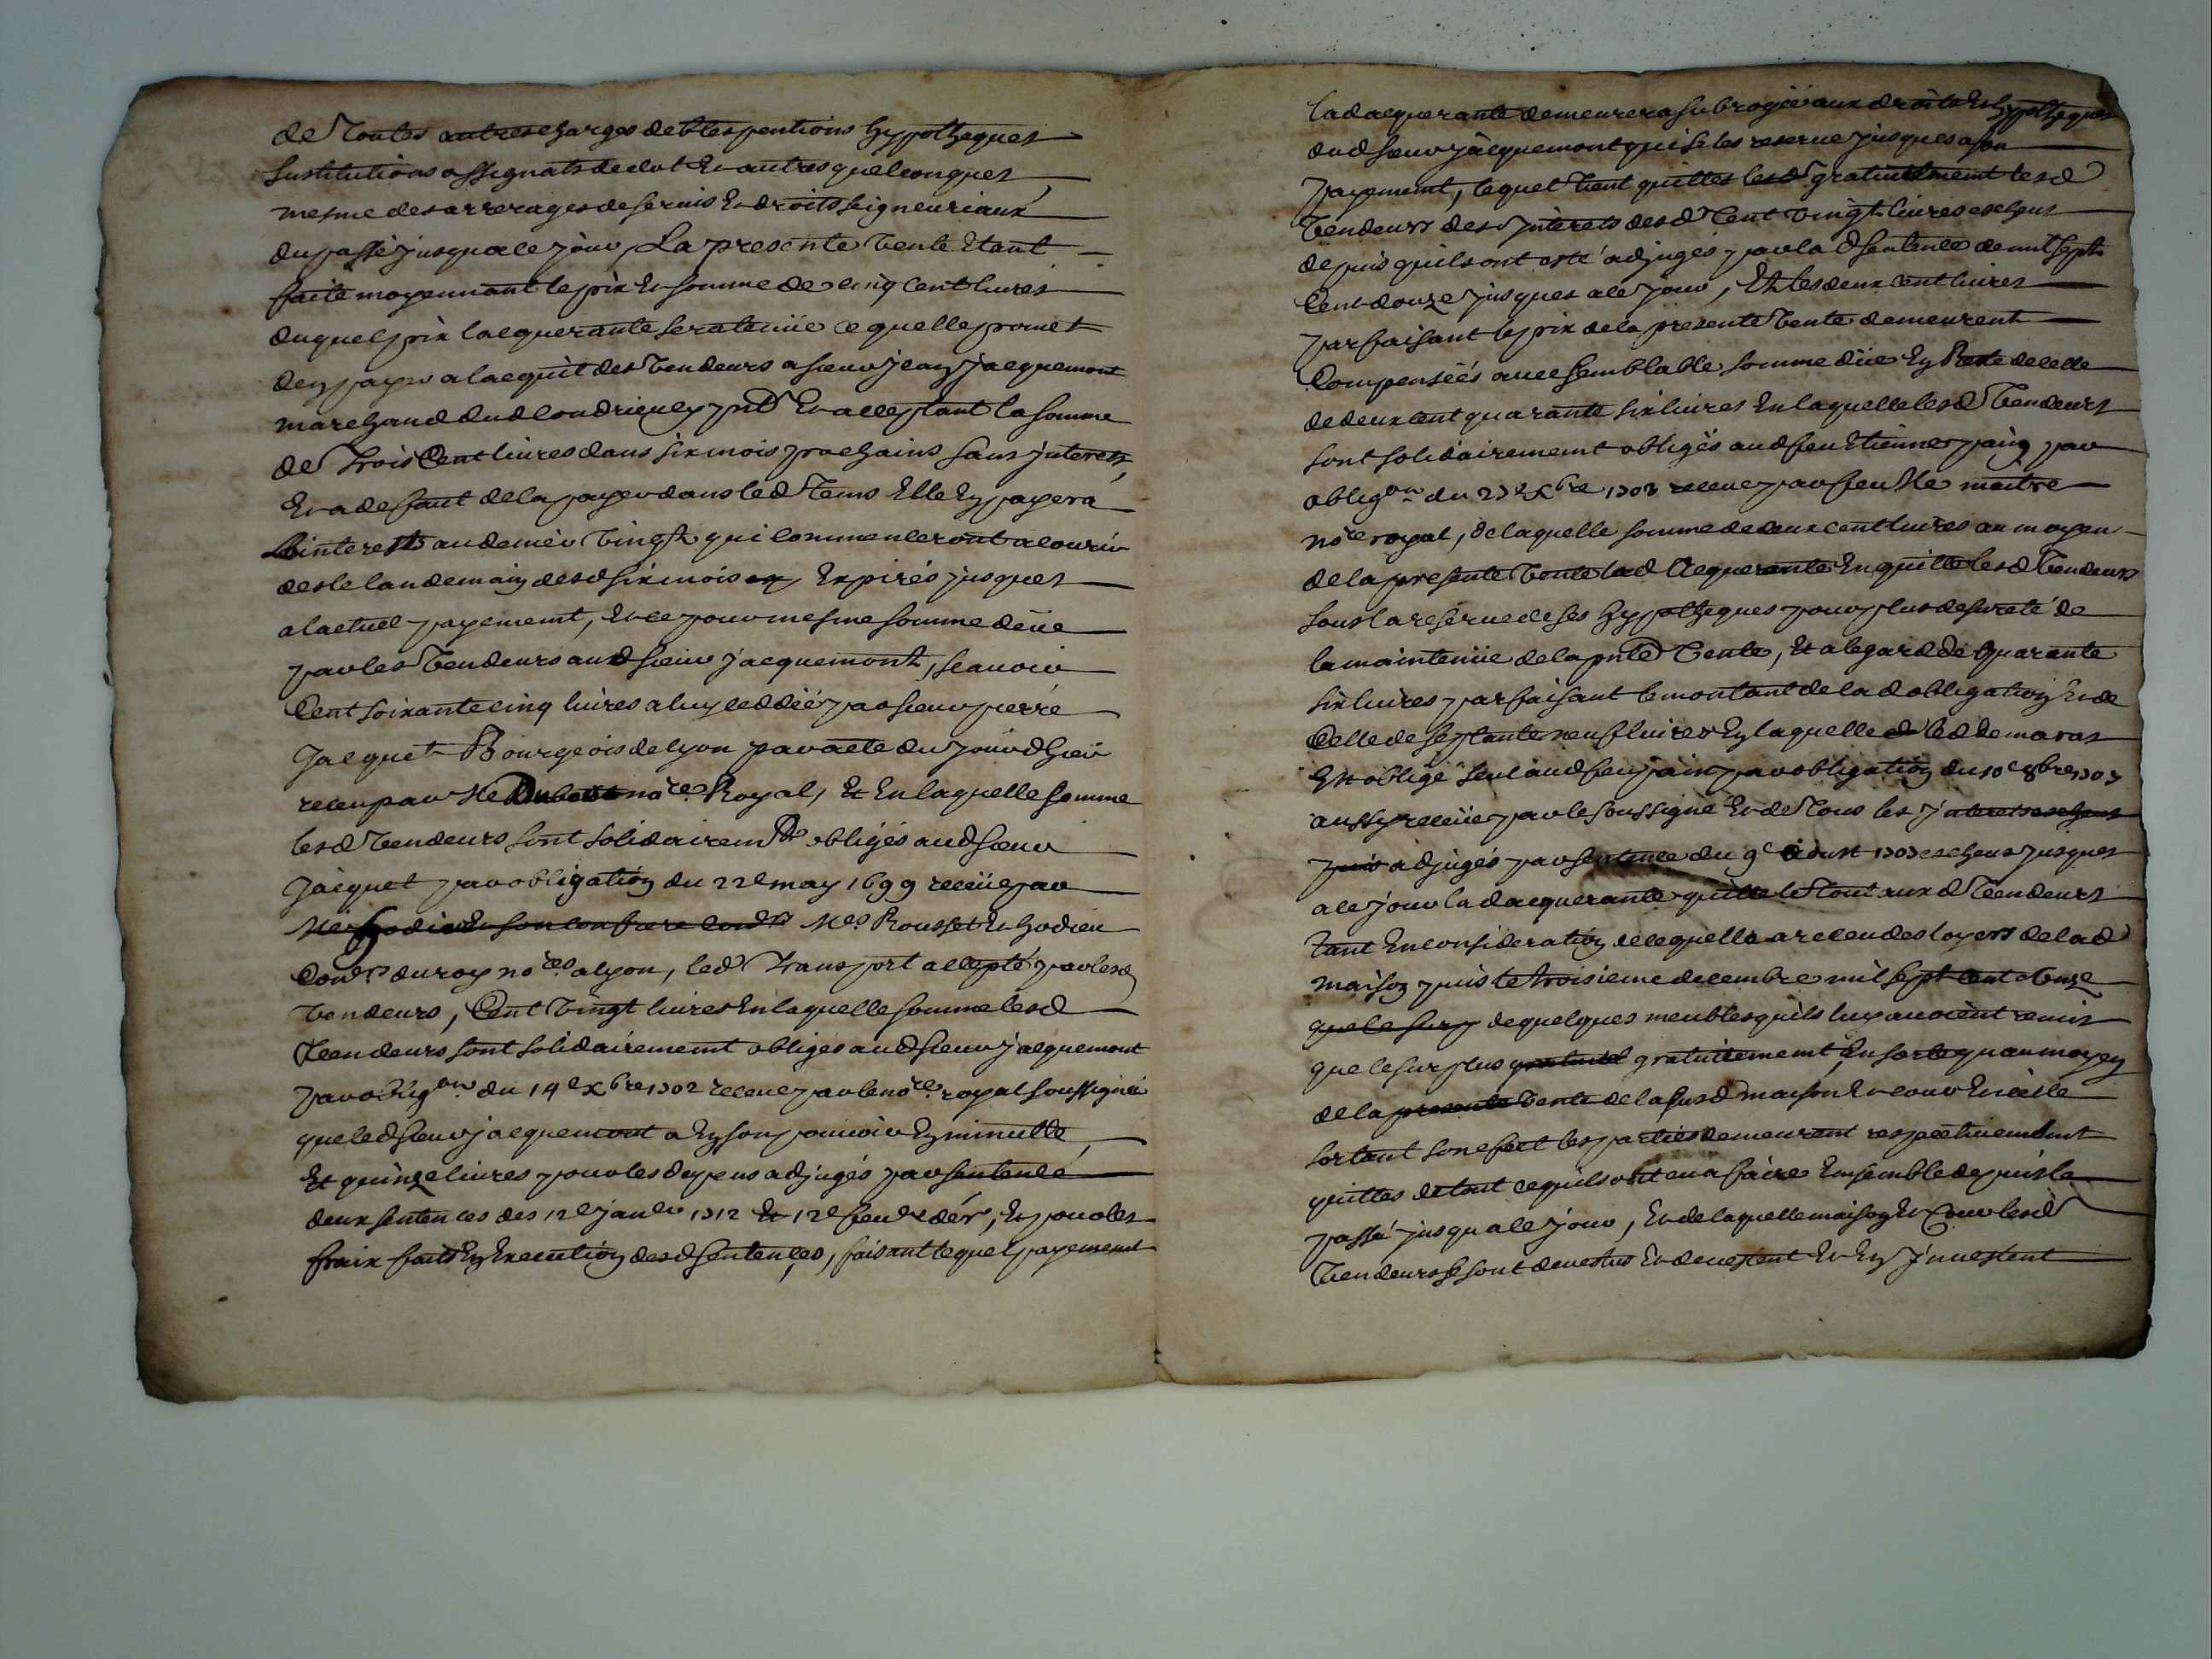 de Toutes autres charges debtes pentions hyppotheques
Sustitutions assignats de dot Et autres quelconques
mesme des arrerages de servis Et droits seigneuriaux
du passé jusqua ce jour, La presente Vente Etant
faite moyennant le prix Et somme de cinq cent livres
duquel prix lacquerante sera tenüe ce quelle promet
den payer a lacquit des Vendeurs a sieur jean jacquemont
marchand dud condrieu ypnt Et acceptant la somme
de Trois Cent livres dans six mois prochains sans jnterets,
Et a deffaut de la payer dans led Tems Elle En payera
Linterests au denier Vingt qui commenceront a courir
des le landemain desd six mois Expirés jusques
a lactuel payement, Et ce pour mesme somme deüe
par les Vendeurs aud sieur jacquemont, scavoir
Cent soixante cinq livres a luy ceddéé par sieur pierre
jacquet Bourgeois de lyon par acte du jourdhier
receu par Me no.re Royal, Et En laquelle somme
lesd Vendeurs sont solidairem.t obligés aud sieur
jacquet par obligation du 22e may 1699 receüe par
Me hodieu Et son confrere cons.rs Mes Rousset Et hodieu
Con.rs du roy no.res a lyon, led Transport accepté par lesd
Vendeurs, Cent Vingt livres En laquelle somme lesd
Vendeurs sont solidairement obligés aud sieur jacquemont
par oblig.on du 14e Xbre 1702 receue par le no.re royal soussigné
que led sieur jacquemont a En son pouvoir En minutte,
Et quinze livres pour les depens adjugés par sentence
deux sentences des 12e janv.r 1712 Et 12e feuv.r der.r, Et pour les
fraix faits En Execution desd sentences, faisant lequel payement
lad acquerante demeurera subrogéé aux droits Et hyppotheques
dud sieur jacquemont qui se les reserve jusques a son
payement, lequel Tient quittes lesd gratuitement lesd
Vendeurs des jnterets desd Cent Vingt livres escheus
depuis quils ont esté adjugés par la d sentence de mil sept
Cent douze jusques a ce jour, Et les deux cent livres
parfaisant le prix de la presente Vente demeurent
Compenséés avec semblable somme düe En Reste de celle
de deux cent quarante six livres En laquelle lesd Vendeurs
sont solidairement obligés aud feu Etienne pain par
oblig.on du Xbre receue par feu Me maitre
no.re royal, de laquelle somme de deux cent livres au moyen
de la presente Vente lad Acquerante En quitte lesd Vendeurs
sous la reserve de ses hyppotheques pour plus de sureté de
la maintenüe de la pnte Vente, Et a legard de Quarante
six livres parfaisant le montant de lad obligation Et de
Celle de septante neuf livres En laquelle led demaras
Est obligé seul aud feu pain par obligation du 10e 8bre 1707
aussy receüe par le soussigné Et de Tous les jnterets escheus
puis adjugés par sentence du 9e aoust escheus jusques
a ce jour lad acquerante quitte le Tout aux d Vendeurs
Tant En consideration de ce quelle a receu des loyers de lad
maison puis le troisieme decembre mil sept cent onze
que le surp de quelques meubles quils luy avoient remis
que le surplus gratuitement, En sorte quau moyen
de la presente Vente de la susd maison Et cour Et icelle
sortant son effect les parties demeurent respectivement
quittes de tout ce quils ont eu a faire Ensemble depuis le
passé jusqua ce jour, Et de laquelle maison Et Cour lesd
Vendeurs se sont devestus Et devestent Et En jnvestent